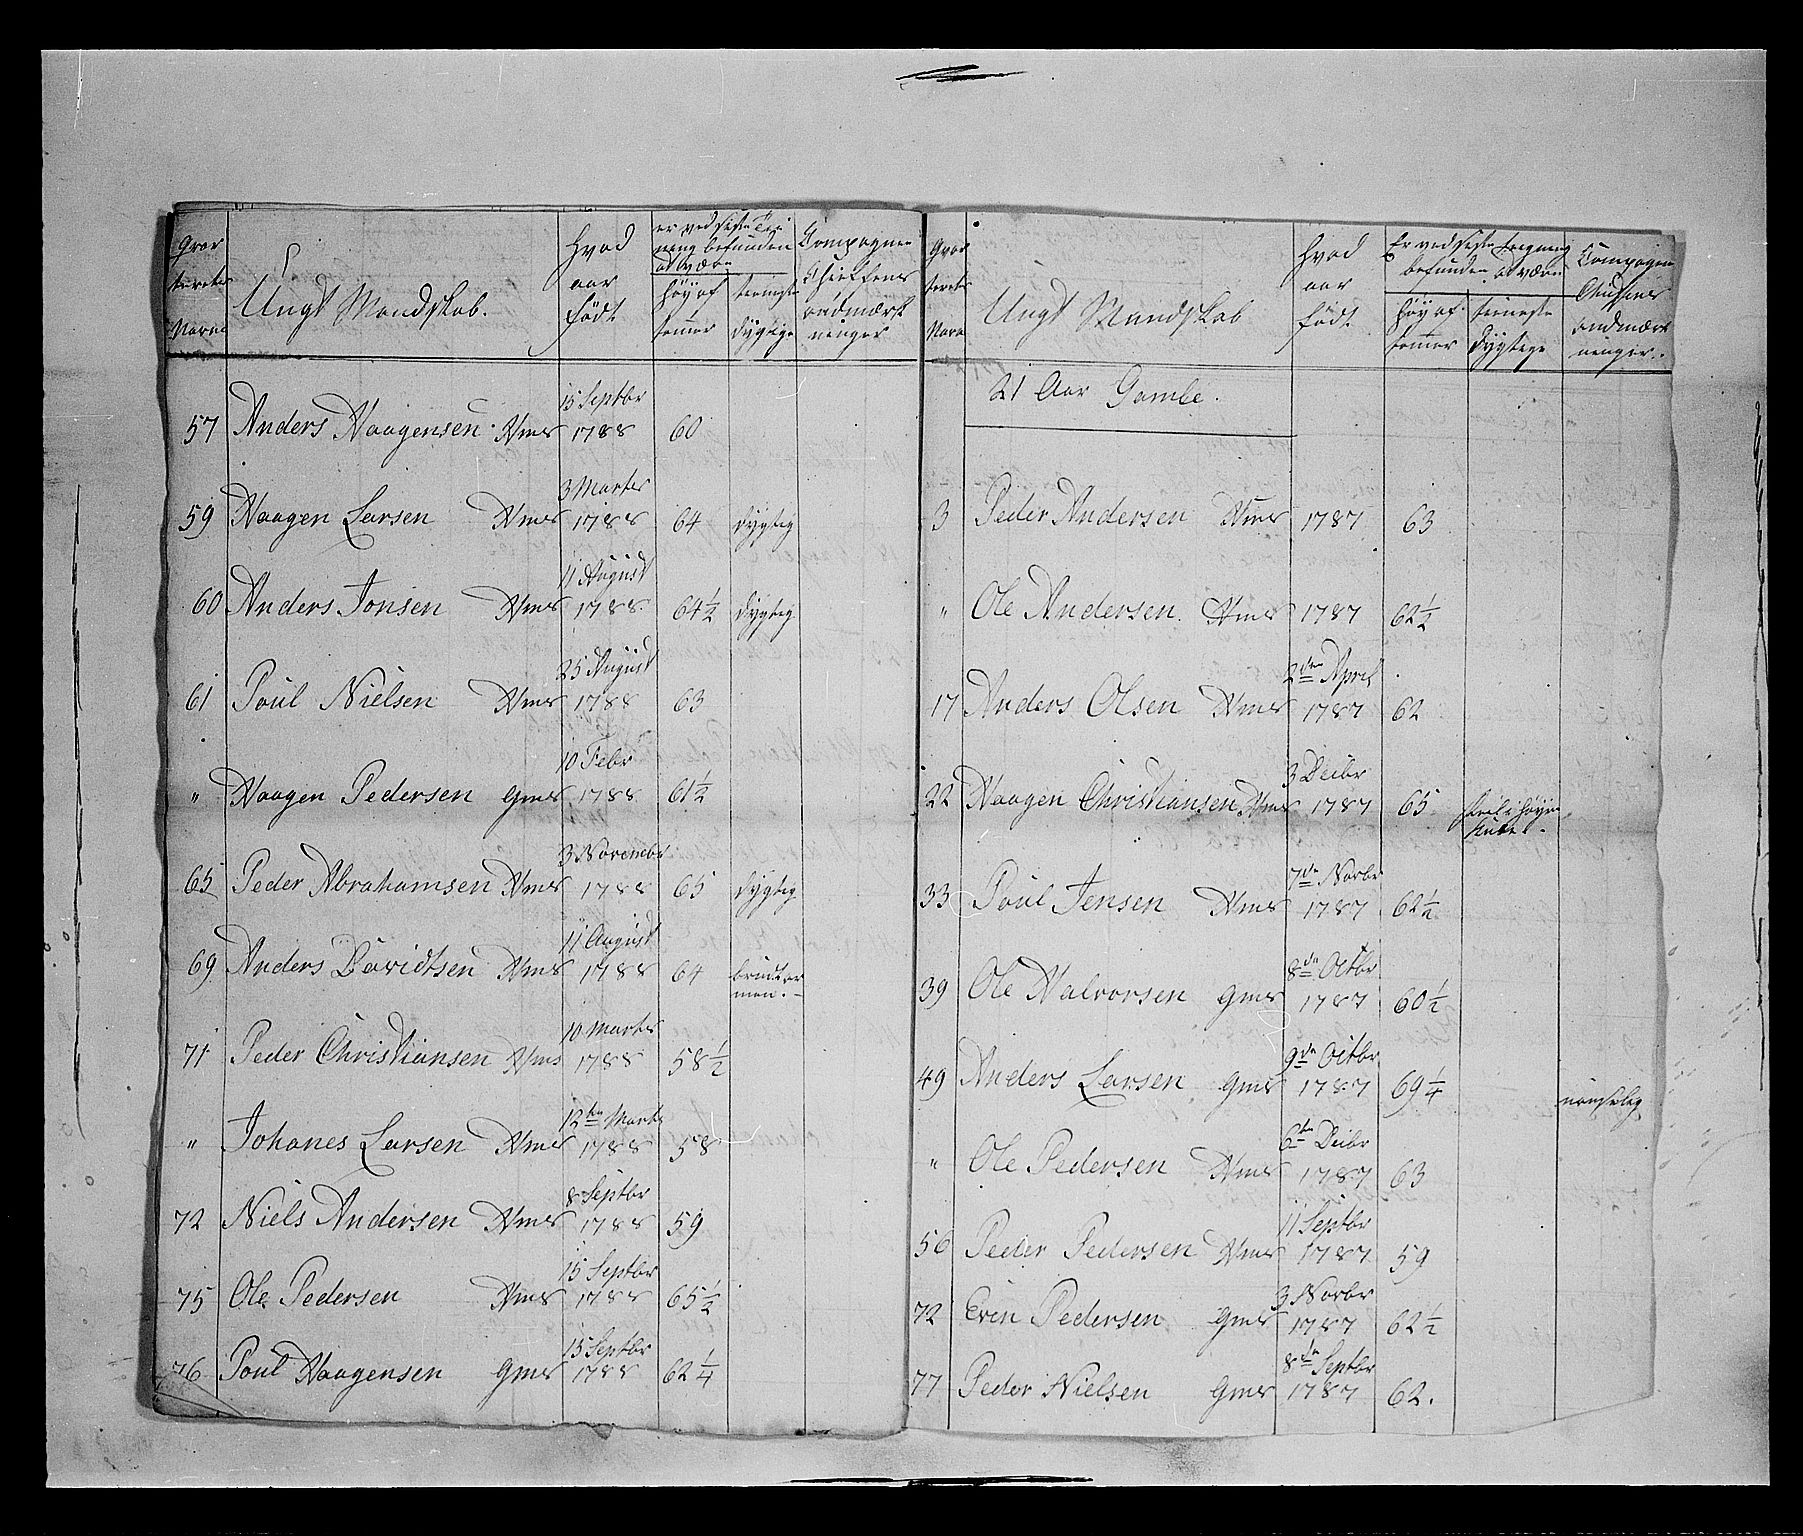 Ungt Mandskab.
Hvad
aar
født
høy af
tommer
dygtige
57 Anders Haagensen Hms 15 Septbr 1788 60
59 Haagen Larsen Hms 3 Martz 1788 64 dygtig
60 Anders Jonsen Hms 11 August 1788 64½ dygtig
61 Poul Nielsen Hms 25 August 1788 63
" Haagen Pedersen Gms 10 Febr 1788 61½
65 Peder Abrahamsen Hms 3 Novembr 1788 65 dygtig
69 Anders Davidtsen Hms 11 August 1788 64
71 Peder Christiansen Hms 10 Martz 1788 58½
" Johanes Larsen Hms 12te Martz 1788 58
72 Niels Andersen Hms 8 Septbr 1788 59
75 Ole Pedersen Hms 15 Septbr 1788 65½
76 Poul Haagensen Gms 15 Septbr 1788 62¼
Ungt Mandskab
Hvad
aar
født
Er ved siste
befunden at være
høy af
tommer
dygtige
21 Aar Gamle.
3 Peder Andersen Hms 1787 63
" Ole Andersen Hms 1787 62½
17 Anders Olsen Hms 2den April 1787 62
22 Haagen Christiansen Hms 3 Decbr 1787 65
33 Poul Jensen Hms 7de Novbr 1787 62½
39 Ole Halvorsen Gms 8de Octbr 1787 60½
49 Anders Larsen Gms 9de Octbr 1787 69¼
" Ole Pedersen Hms 6te Decbr 1787 63
56 Peder Pedersen Hms 11 Septbr 1787 59
72 Even Pedersen Gms 3 Novbr 1787 62½
77 Peder Nielsen Gms 8de Septbr 1787 62.